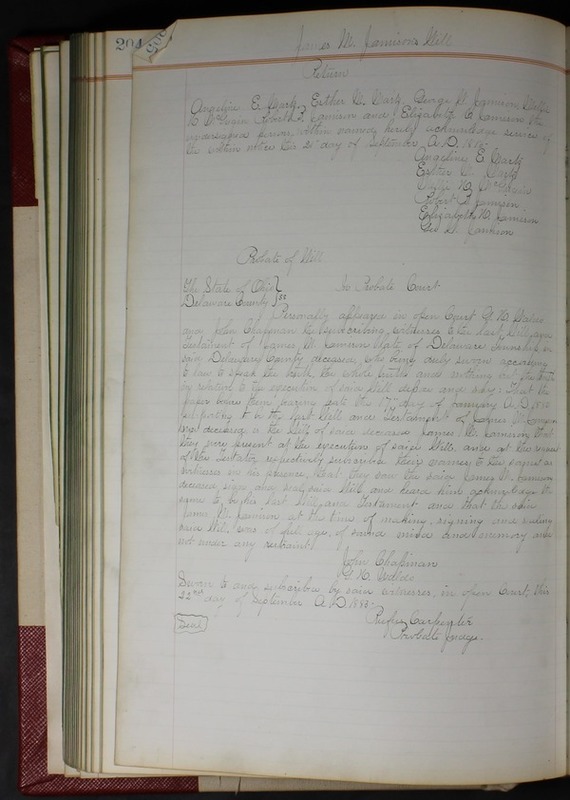 204
James M. Jamison Will
Return
Angeline E. Martz, Esther M. Martz, George D. Jamison,
Robert Jamison and Elizabeth Jamison the
undersigned persons within named hereby acknowledge service of
the within notice this 21 day of September A.D. 188
Angeline E Martz
Esther M. Martz
Robert Jamison
Elizabeth H. Jamison
Geo D. Jamison
Probate of Will
The State of Ohio }
Delaware County } ss In Probate Court
Personally appeared in open Court
and John Chapman the subscribing witnesses to the last Will and
Testament of James M. Jamison late of Delaware Township in
said Delaware County deceased, who being duly sworn according
to law to speak the truth the whole truth and nothing but the truth
in relation to the execution of said Will depose and say: That the
paper before them bearing date the 17th day of January A.D. 18
purporting to be the last Will and Testament of James M. Jamison
now deceased is the Will of said deceased James M. Jamison that
they were present at the execution of said Will, and at the request
of the Testator respectively subscribed their names to the same as
witnesses in his presence, that they saw the said James M. Jamison
deceased sign and seal said Will and heard him acknowledge the
same to be his last Will and Testament and that the said
James M. Jamison at the time of making, signing and sealing
said Will was of full age, of sound mind and memory and
not under any restraint.
John Chapman
Sworn to and subscribed by said witnesses, in open Court, this
22nd day of September A.D. 188
Seal
Rufus Carpenter
Probate Judge.